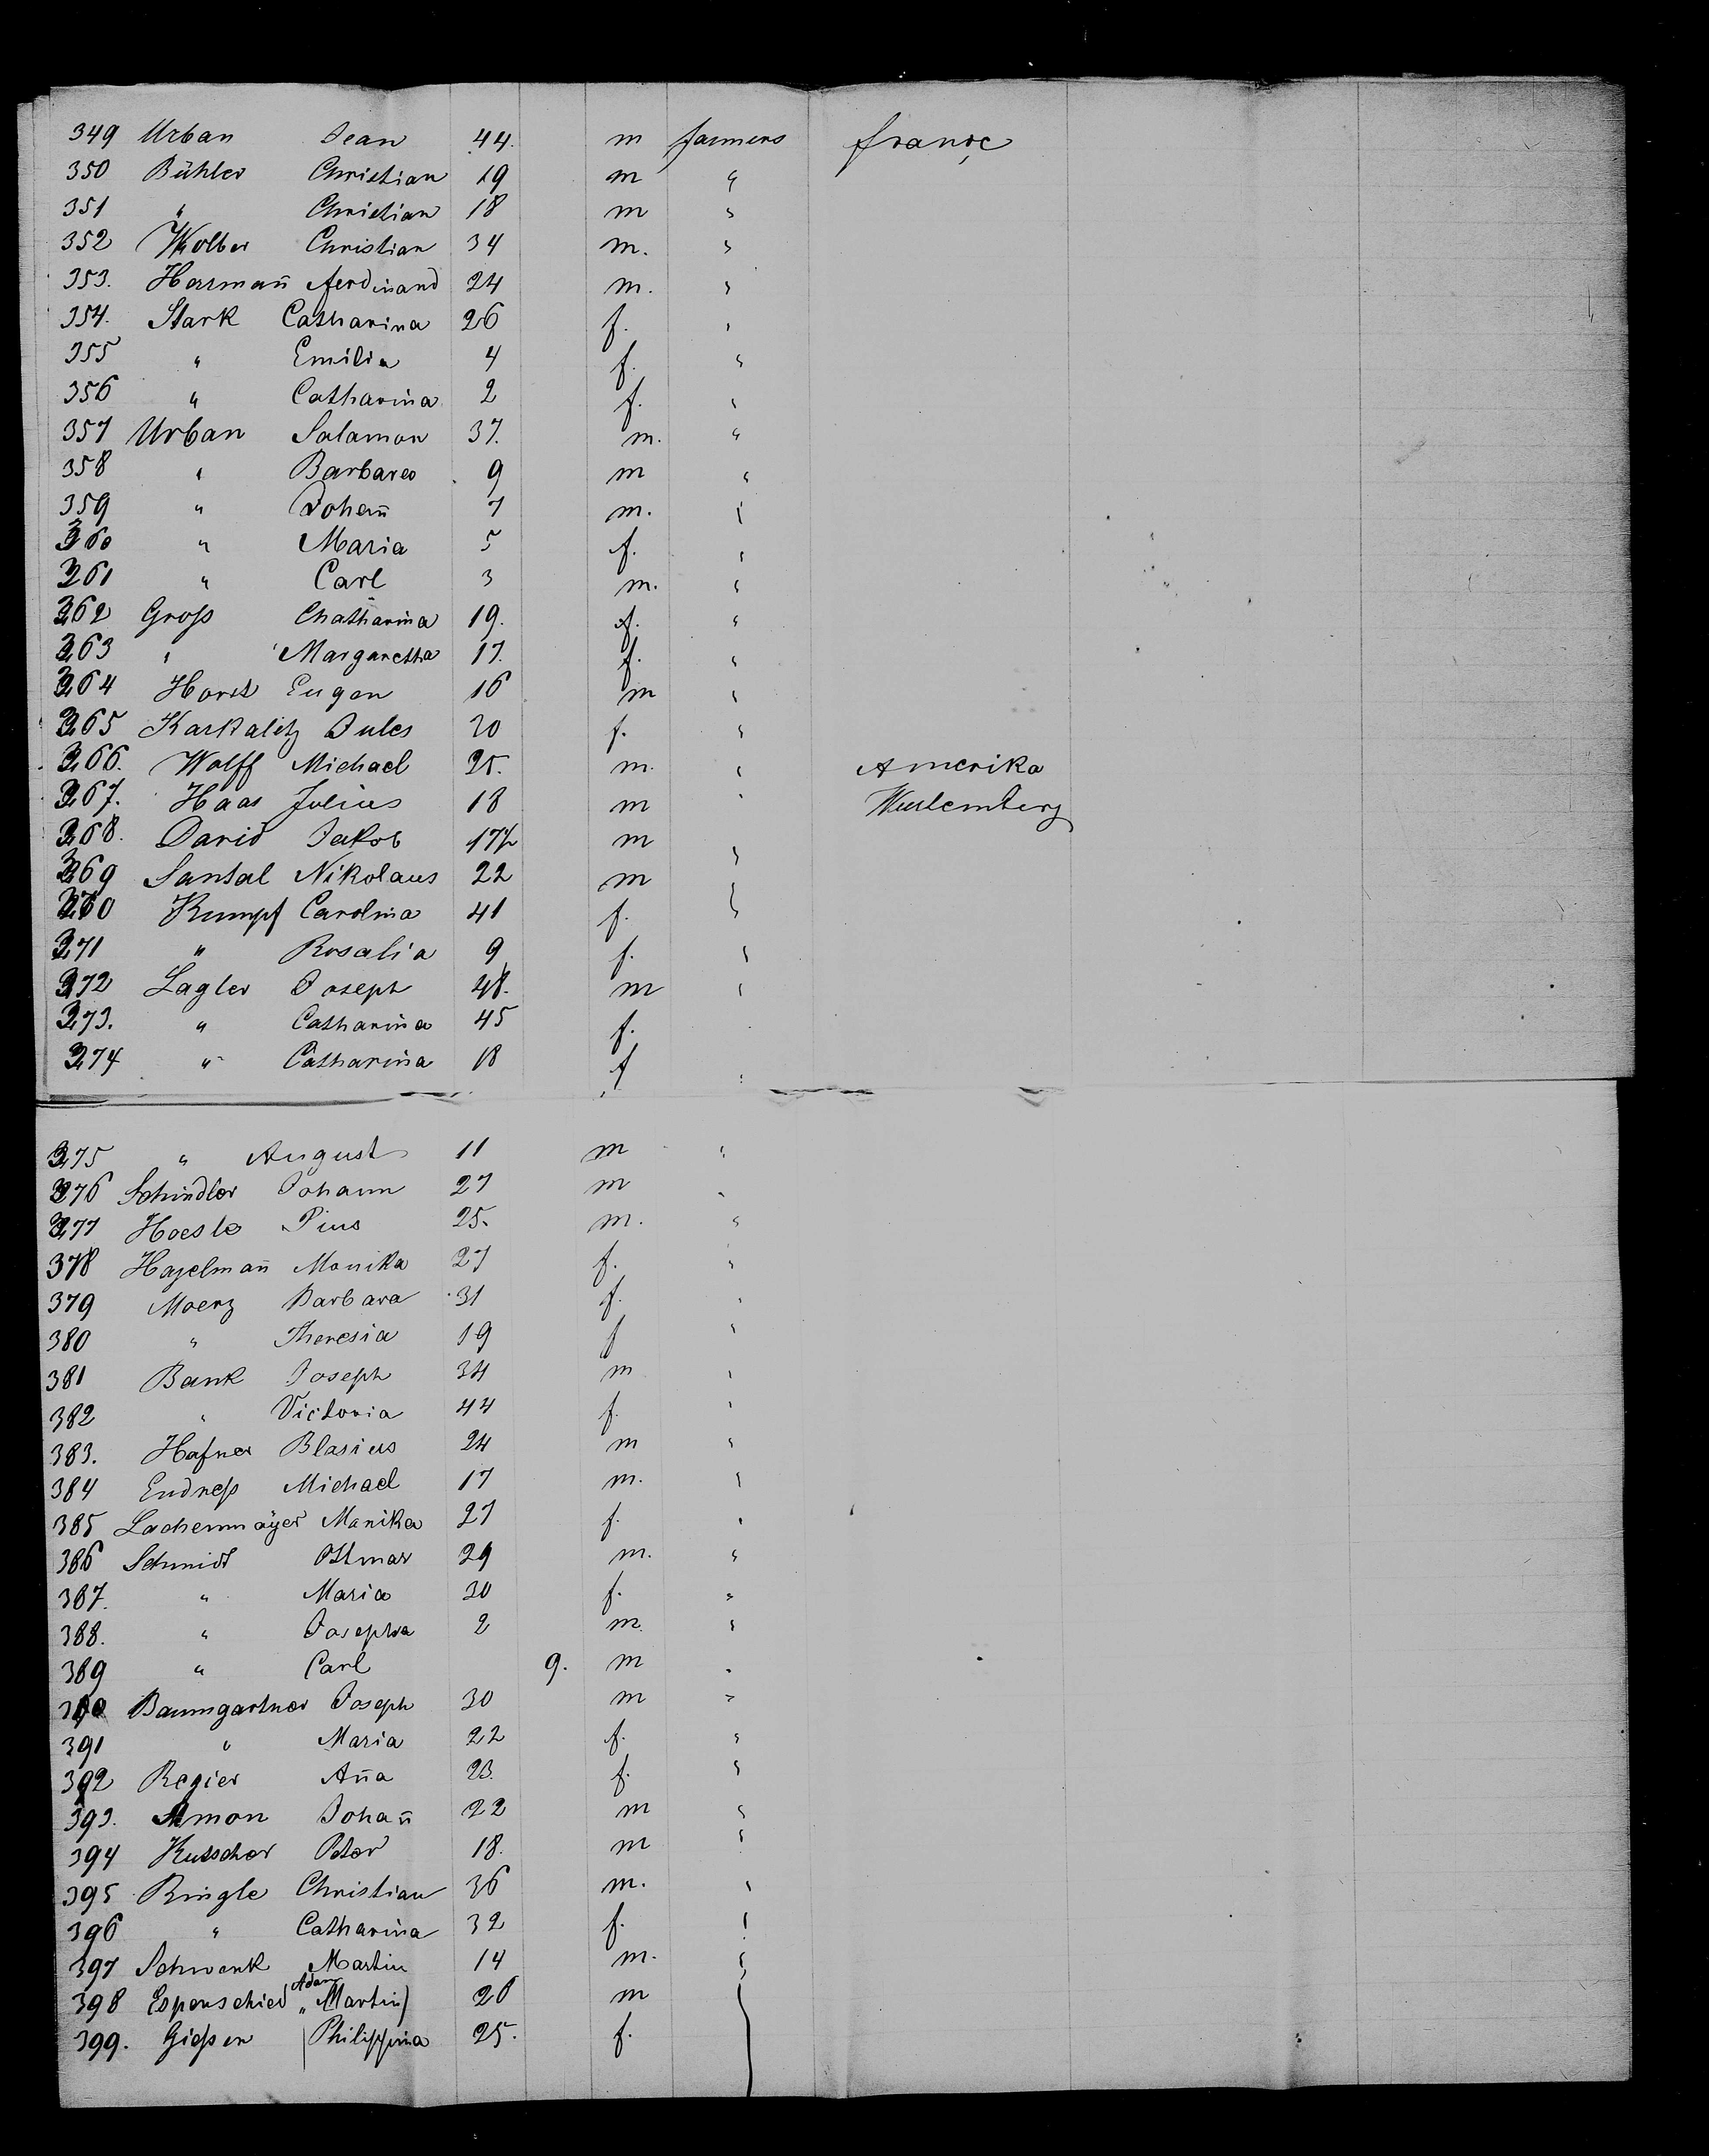 349 Urban Jean 44. m farmers franҫe
350 Bühler Christian 19 m "
351 " Christian 18 m "
352 Wolber Christian 34 m. "
353. Hermañ ferdinand 24 m. "
354. Stark Catharina 26 f. "
355 " Emilia 4 f. "
356 " Catharina 2 f. "
357 Urban Salamon 37. m. "
358 " Barbara 9 m "
359 " Johañ 7 m. "
360 " Maria 5 f. "
361 " Carl 3 m. "
362 Groß Chatharina 19. f. "
363 " Margaretha 17. f. "
364 Horst Eugen 16 m "
365 Karkalitz Jules 20 f. "
366. Wolff Michael 25. m. " Amerika
367. Haas Julius 18 m " Wurtemberg
368. David Jakob 17 m "
369 Santal Nikolaus 22 m "
370 Kumpf Carolina 41 f. "
371 " Rosalia 9 f. "
372 Lagler Joseph 48. m "
373. " Catharina 45 f. "
374 " Catharina 18 f "
375 " August 11 m "
376 Schindler Johann 27 m "
377 Hoesle Pius 25. m. "
378 Hagelmañ Monika 27 f. "
379 Moerz Barbara 31 f. "
380 " Theresia 19 f "
381 Bank Joseph 34 m "
382 " Victoria 44 f. "
383. Hafner Blasius 24 m "
384 Endreß Michael 17 m. "
385 Lachenmayer Monika 27 f. "
386 Schmidt Ottmar 29 m. "
387. " Maria 30 f. "
388. " Josepha 2 m. "
389 " Carl 9. m "
390 Baumgartner Joseph 30 m "
391 " Maria 22 f. "
392 Regier Aña 23. f. "
393. Amon Johañ 22 m "
394 Kutscher Peter 18. m "
395 Ringle Christian 36 m. "
396 " Catharina 32 f. "
397 Schwenk Martin 14 m. "
398 Espenschied Adam " Martin) 26 m
399. Gießen Philippina 25. f.